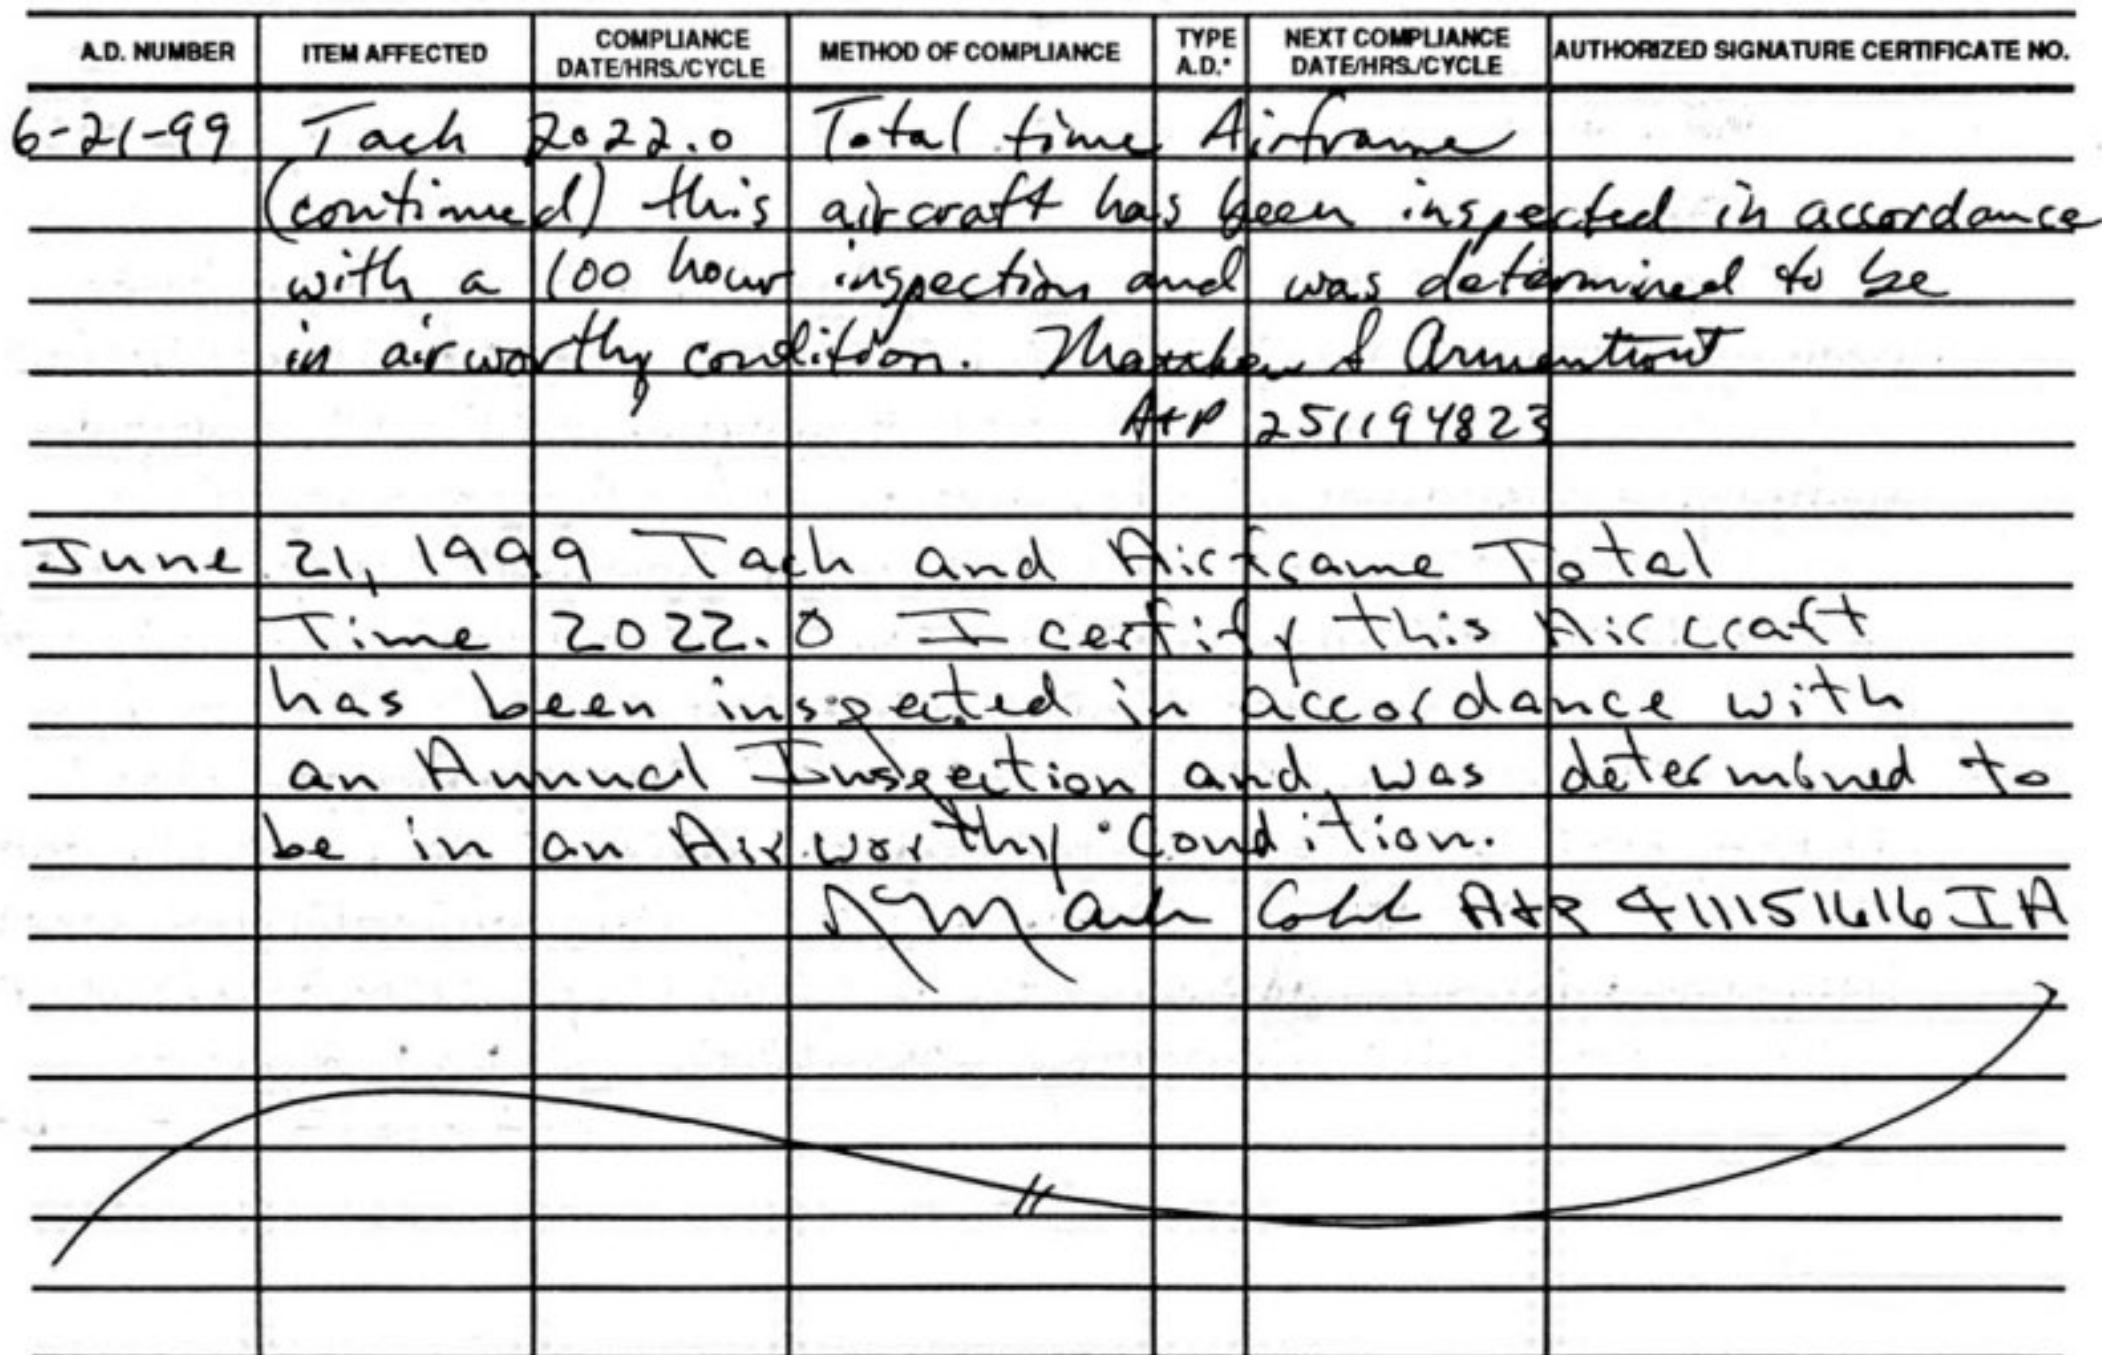 A.D. NUMBER ITEM AFFECTED COMPLIANCE DATE/HRS./CYCLE METHOD OF COMPLIANCE TYPE A.D.* NEXT COMPLIANCE DATE/HRS./CYCLE AUTHORIZED SIGNATURE CERTIFICATE NO.
6-21-99 Tach 2022.0 Total time Airframe
(continued) this aircraft has been inspected in accordance
with a 100 hour inspection and was determined to be
in airworthy condition. Matthew S Armentrout
A+P 251194823
June 21, 1999 Tach and Airframe Total
Time 2022.0 I certify this Aircraft
has been inspected in accordance with
an Annual Inspection and was determined to
be in an Airworthy Condition.
Mark A+P 411151616 IA